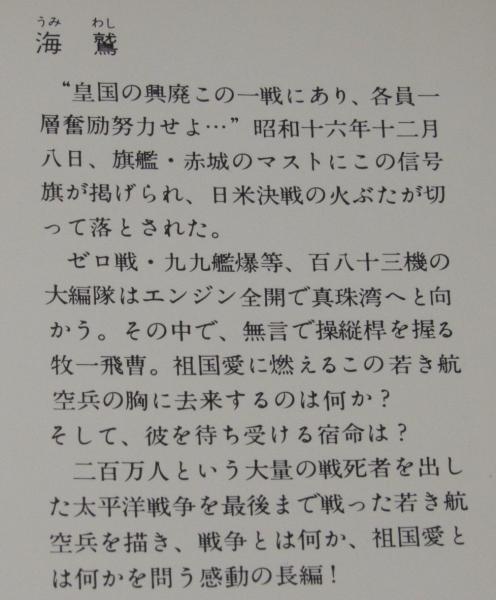 うみ わし
海 鷲
“皇国の興廃この一戦にあり、各員一
層奮励努力せよ…” 昭和十六年十二月
八日、旗艦・赤城のマストにこの信号
旗が掲げられ、日米決戦の火ぶたが切
って落とされた。
ゼロ戦・九九艦爆等、百八十三機の
大編隊はエンジン全開で真珠湾へと向
かう。その中で、無言で操縦桿を握る
牧一飛曹。祖国愛に燃えるこの若き航
空兵の胸に去来するのは何か?
そして、彼を待ち受ける宿命は?
二百万人という大量の戦死者を出し
た太平洋戦争を最後まで戦った若き航
空兵を描き、戦争とは何か、祖国愛と
は何かを問う感動の長編!